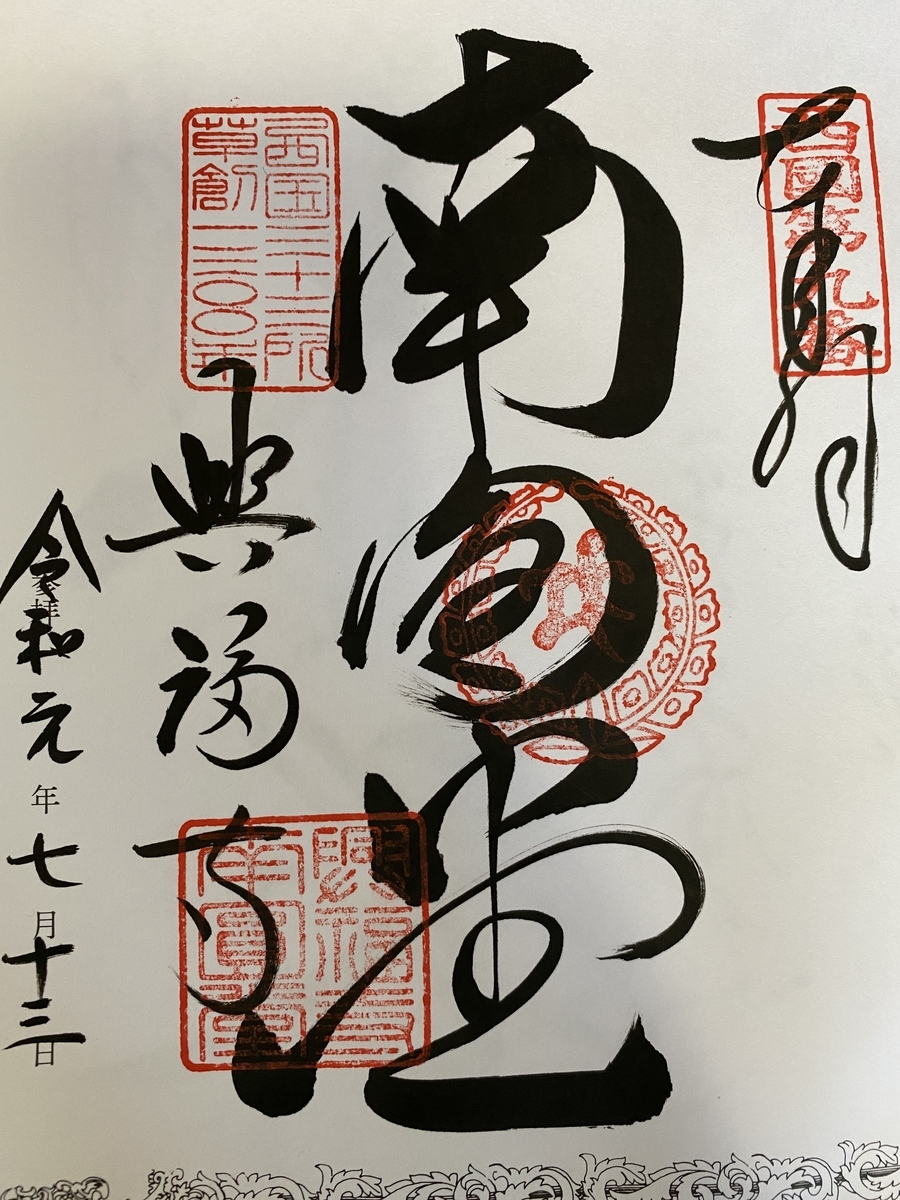 奉拝
西國第九番
南圓堂
西国三十三所
草創一三〇〇年
興福寺
興福寺
南圓堂
令和元年七月十三日